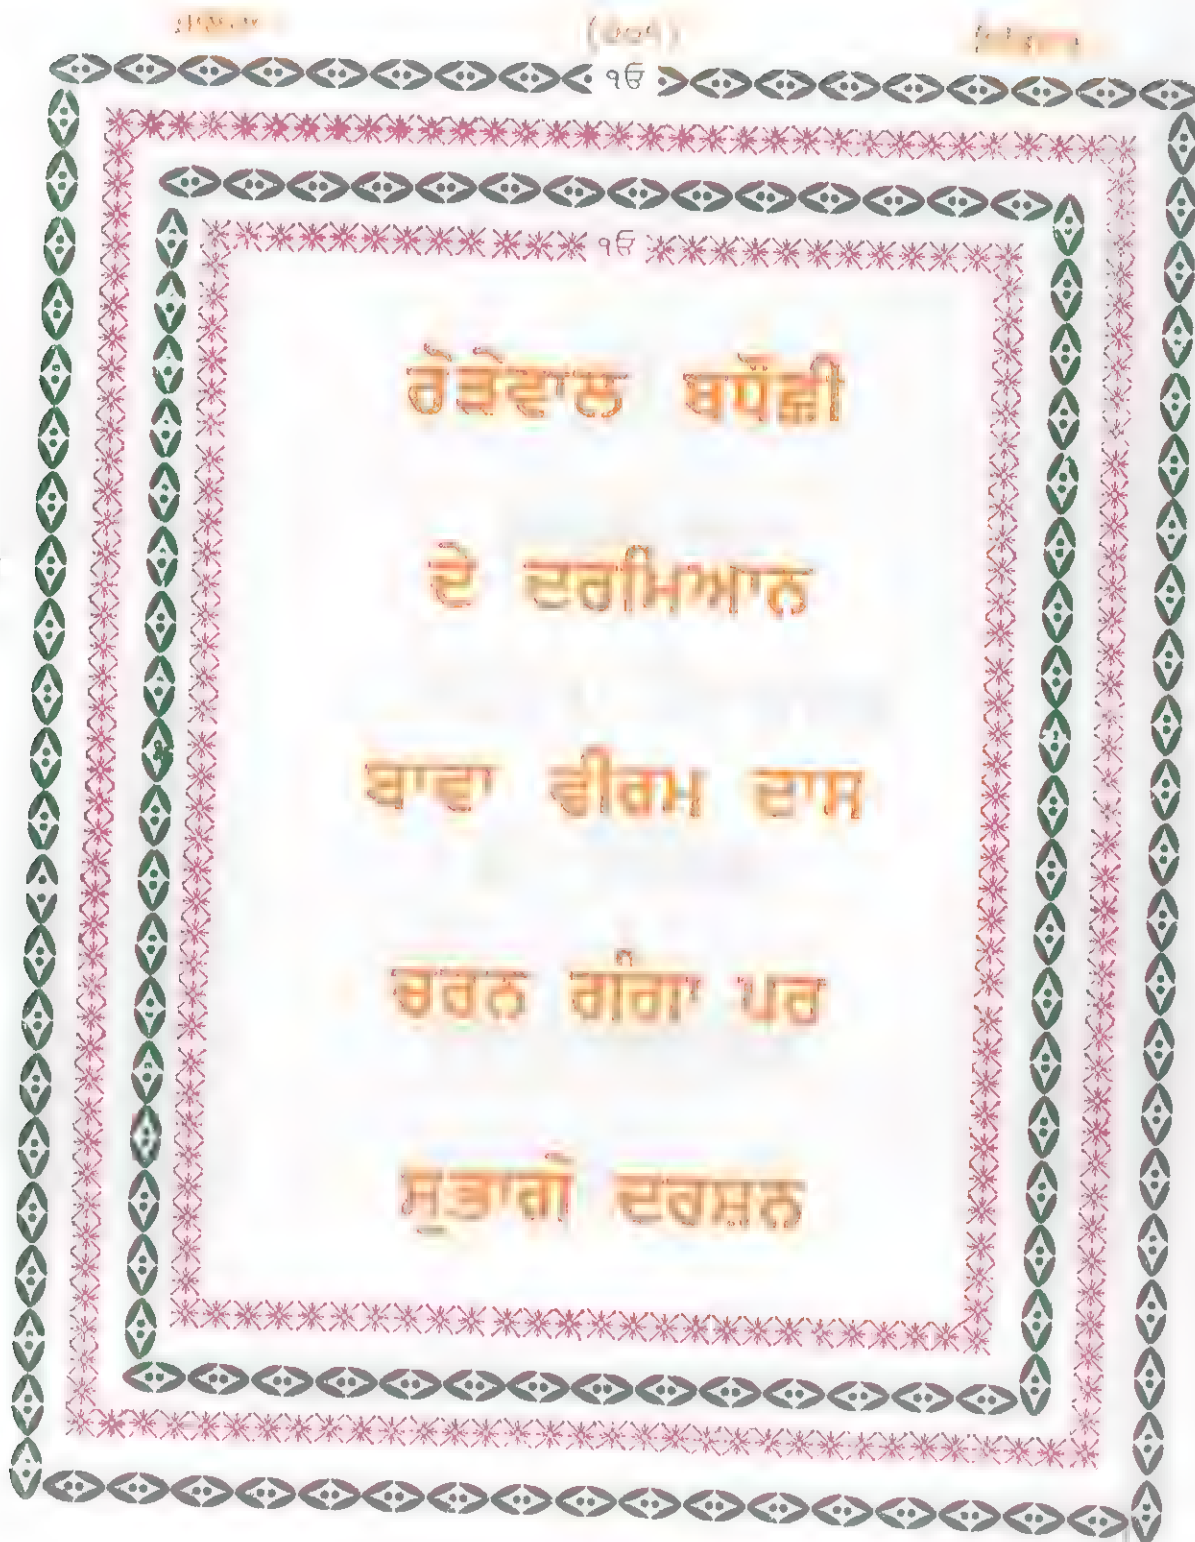 ੴ
ੴ
ਰੋੜੇਵਾਲ ਥਪੌਛੀ
ਦੇ ਦਰਮਿਆਨ
ਬਾਵਾ ਵੀਰਮ ਦਾਸ
ਚਰਨ ਗੰਗਾ ਪਰ
ਸੁਭਾਗੇ ਦਰਸ਼ਨ